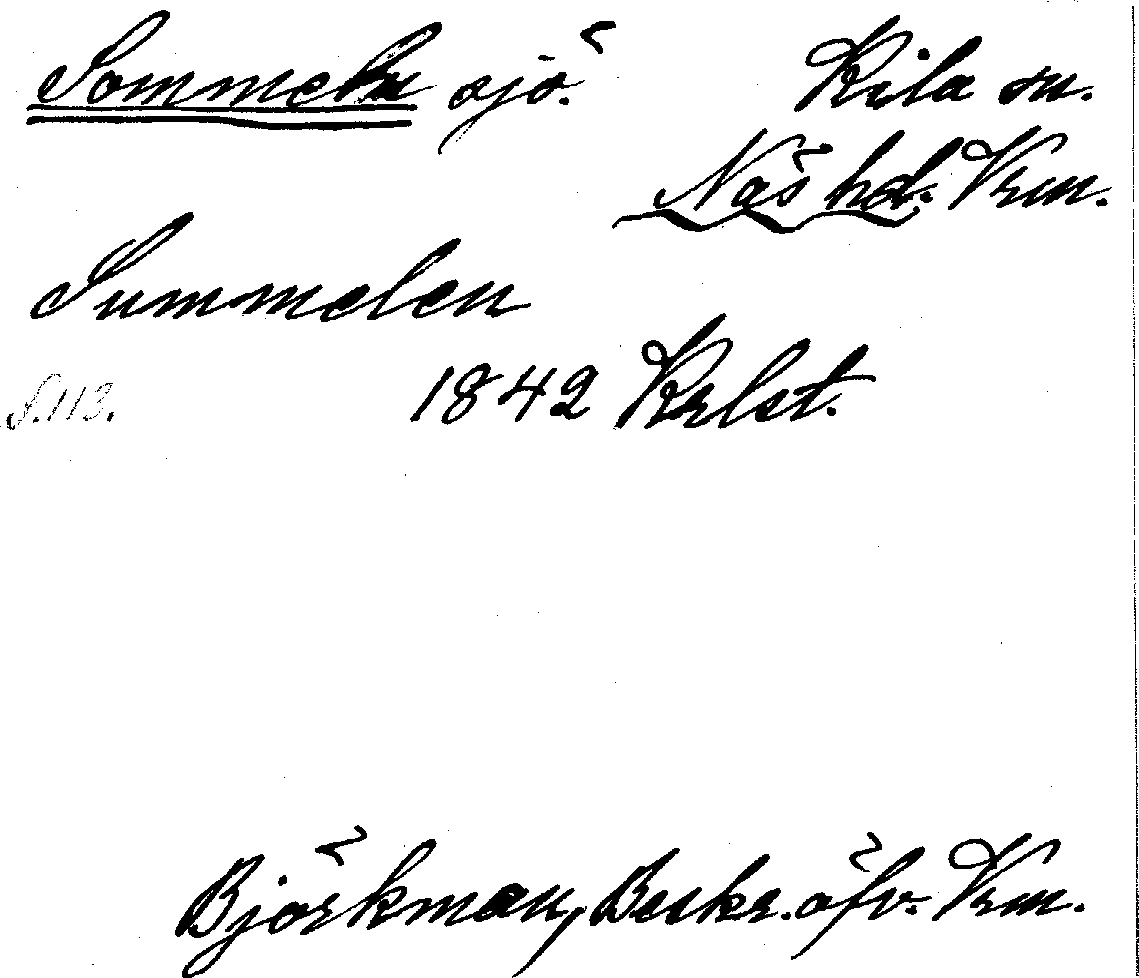 Sommeln sjö. Kila sn.
Näs hd. Vrm.
Summelen
S.113. 1842 Krlst.
Björkman, Beskr. öfv. Vrm.